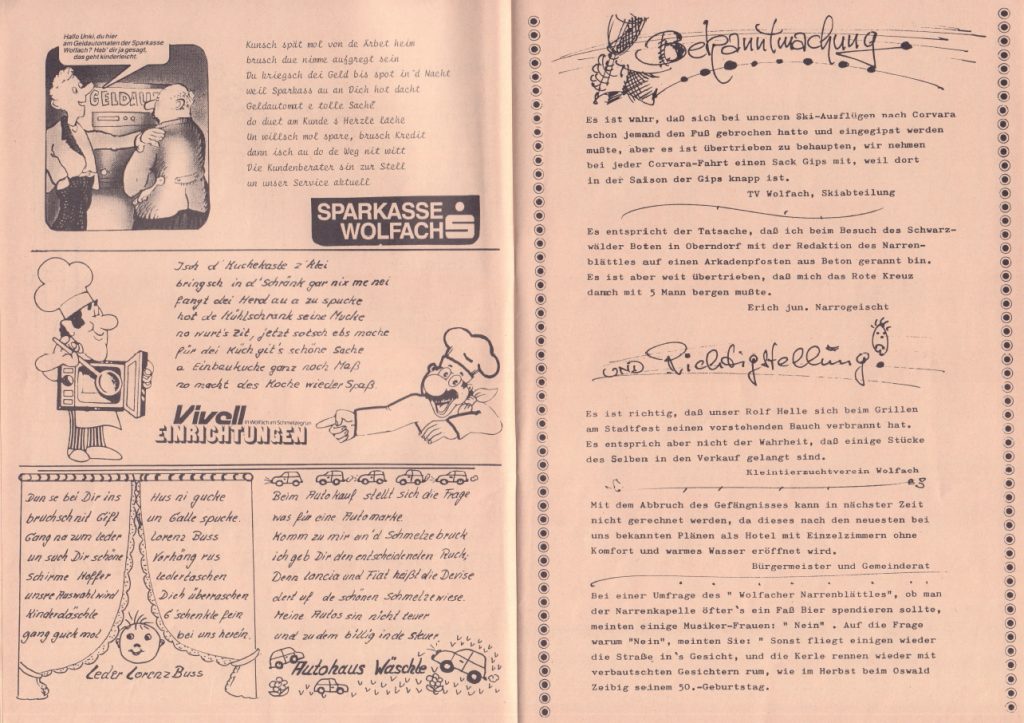 Hallo Unki, du hier
am Geldautomaten der Sparkasse
Wolfach? Hab' dir ja gesagt,
das geht kinderleicht.
GELDAU
Kunsch spät mol von de Arbet heim
brusch due nimme aufgregt sein
Du kriegsch dei Geld bis spot in'd Nacht
weil Sparkass au an Dich hot dacht
Geldautomat e tolle Sache
do duet am Kunde s Herzle lache
Un willsch mol spare, brusch Kredit
dann isch au do de Weg nit witt
Die Kundenberater sin zur Stell
un unser Service aktuell
SPARKASSE
WOLFACH
Isch d' Kuchekaste z'klei
bringsch in d'Schränk gar nix me nei
fangt dei Herd au a zu spucke
hot de Kühlschrank seine Mucke
no wurt's Zit, jetzt sotsch ebs mache
für dei Küch git's schöne Sache
a Einbaukuche ganz noch Maß
no macht des Koche wieder Spaß.
Vivell in Wolfach im Schmelzegrün
EINRICHTUNGEN
Dun se bei Dir ins
bruchschnit Gift
Gang na zum Leder
un such Dir schöne
Schirme Koffer
unsre Auswahl wird
Kinderdäschle
gang guck mol
Hus ni gucke
un Galle spucke.
Lorenz Buss
Vorhäng rus
Ledertaschen
Dich überraschen
G'schenkle fein
bei uns herein.
Leder Lorenz Buss
Beim Autokauf stellt sich die Frage
was für eine Automarke.
Komm zu mir an'd Schmelzebruck
ich geb Dir den entscheidenden Ruck;
Denn Lancia und Fiat heißt die Devise
dert uf de schönen Schmelzewiese.
Meine Autos sin nicht teuer
und zu dem billig in de Steuer.
Autohaus Wäschle
Bekanntmachung
Es ist wahr, daß sich bei unseren Ski-Ausflügen nach Corvara
schon jemand den Fuß gebrochen hatte und eingegipst werden
mußte, aber es ist übertrieben zu behaupten, wir nehmen
bei jeder Corvara-Fahrt einen Sack Gips mit, weil dort
in der Saison der Gips knapp ist.
TV Wolfach, Skiabteilung
Es entspricht der Tatsache, daß ich beim Besuch des Schwarz-
wälder Boten in Oberndorf mit der Redaktion des Narren-
blättles auf einen Arkadenpfosten aus Beton gerannt bin.
Es ist aber weit übertrieben, daß mich das Rote Kreuz
danach mit 5 Mann bergen mußte.
Erich jun. Narrogeischt
UND Richtigstellung!
Es ist richtig, daß unser Rolf Helle sich beim Grillen
am Stadtfest seinen vorstehenden Bauch verbrannt hat.
Es entsprich aber nicht der Wahrheit, daß einige Stücke
des Selben in den Verkauf gelangt sind.
Kleintierzuchtverein Wolfach
Mit dem Abbruch des Gefängnisses kann in nächster Zeit
nicht gerechnet werden, da dieses nach den neuesten bei
uns bekannten Plänen als Hotel mit Einzelzimmern ohne
Komfort und warmes Wasser eröffnet wird.
Bürgermeister und Gemeinderat
Bei einer Umfrage des " Wolfacher Narrenblättles", ob man
der Narrenkapelle öfter's ein Faß Bier spendieren sollte,
meinten einige Musiker-Frauen: " Nein" . Auf die Frage
warum "Nein", meinten Sie: " Sonst fliegt einigen wieder
die Straße in's Gesicht, und die Kerle rennen wieder mit
verbautschten Gesichtern rum, wie im Herbst beim Oswald
Zeibig seinem 50.-Geburtstag.